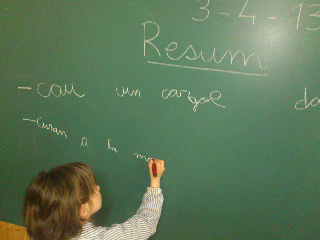 3-4-13
Resum
-cau un cargol da
-Giran n la m